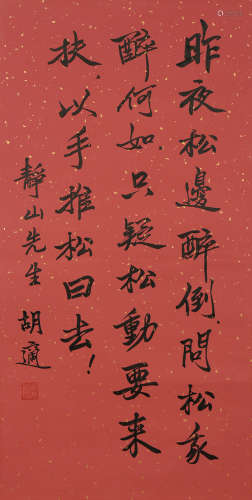 昨夜松邊醉倒，問松我
醉何如。只疑松動要来
扶，以手推松曰去！
靜山先生
胡適